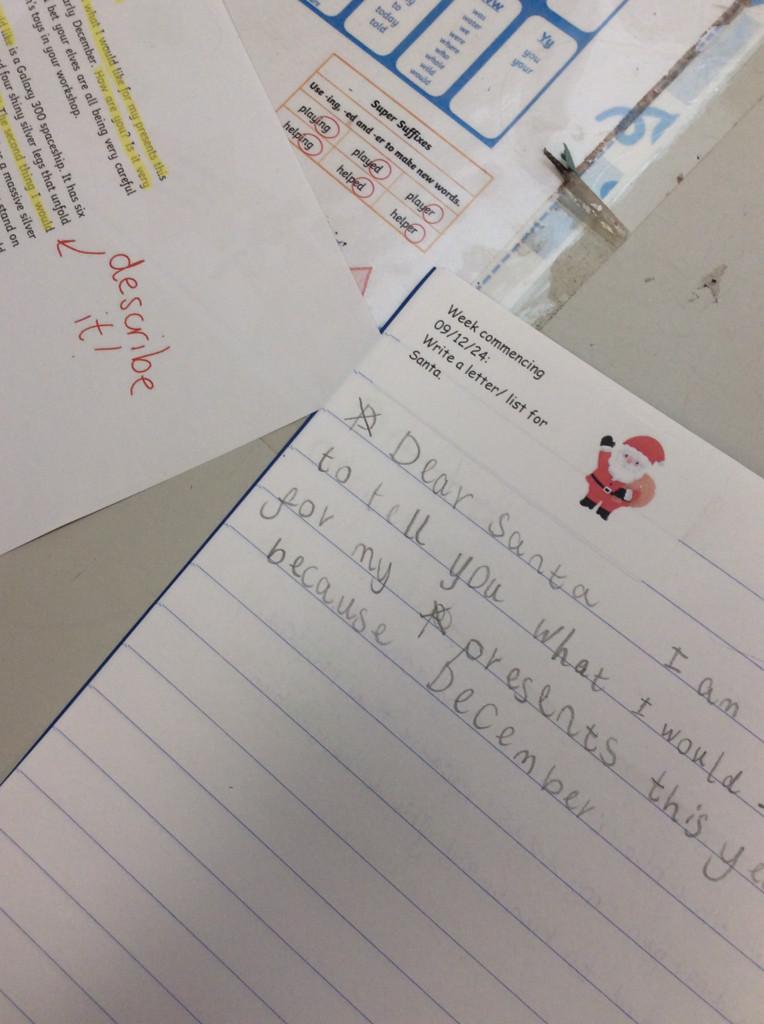 what I would like for my presents this
early December. How are you? Is it very
bet your elves are all being very careful
toys in your workshop.
like is a Galaxy 300 spaceship. It has six
four shiny silver legs that unfold
The second thing I would
a massive silver
stand on
describe
it!
to
today
told
was
water
we
were
where
who
whole
wild
would
Yy
you
your
Super Suffixes
Use -ing, -ed and -er to make new words.
playing played player
helping helped helper
Week commencing
09/12/24:
Write a letter/ list for
Santa.
Dear Santa I am
to tell you what I would
for my presents this
because December